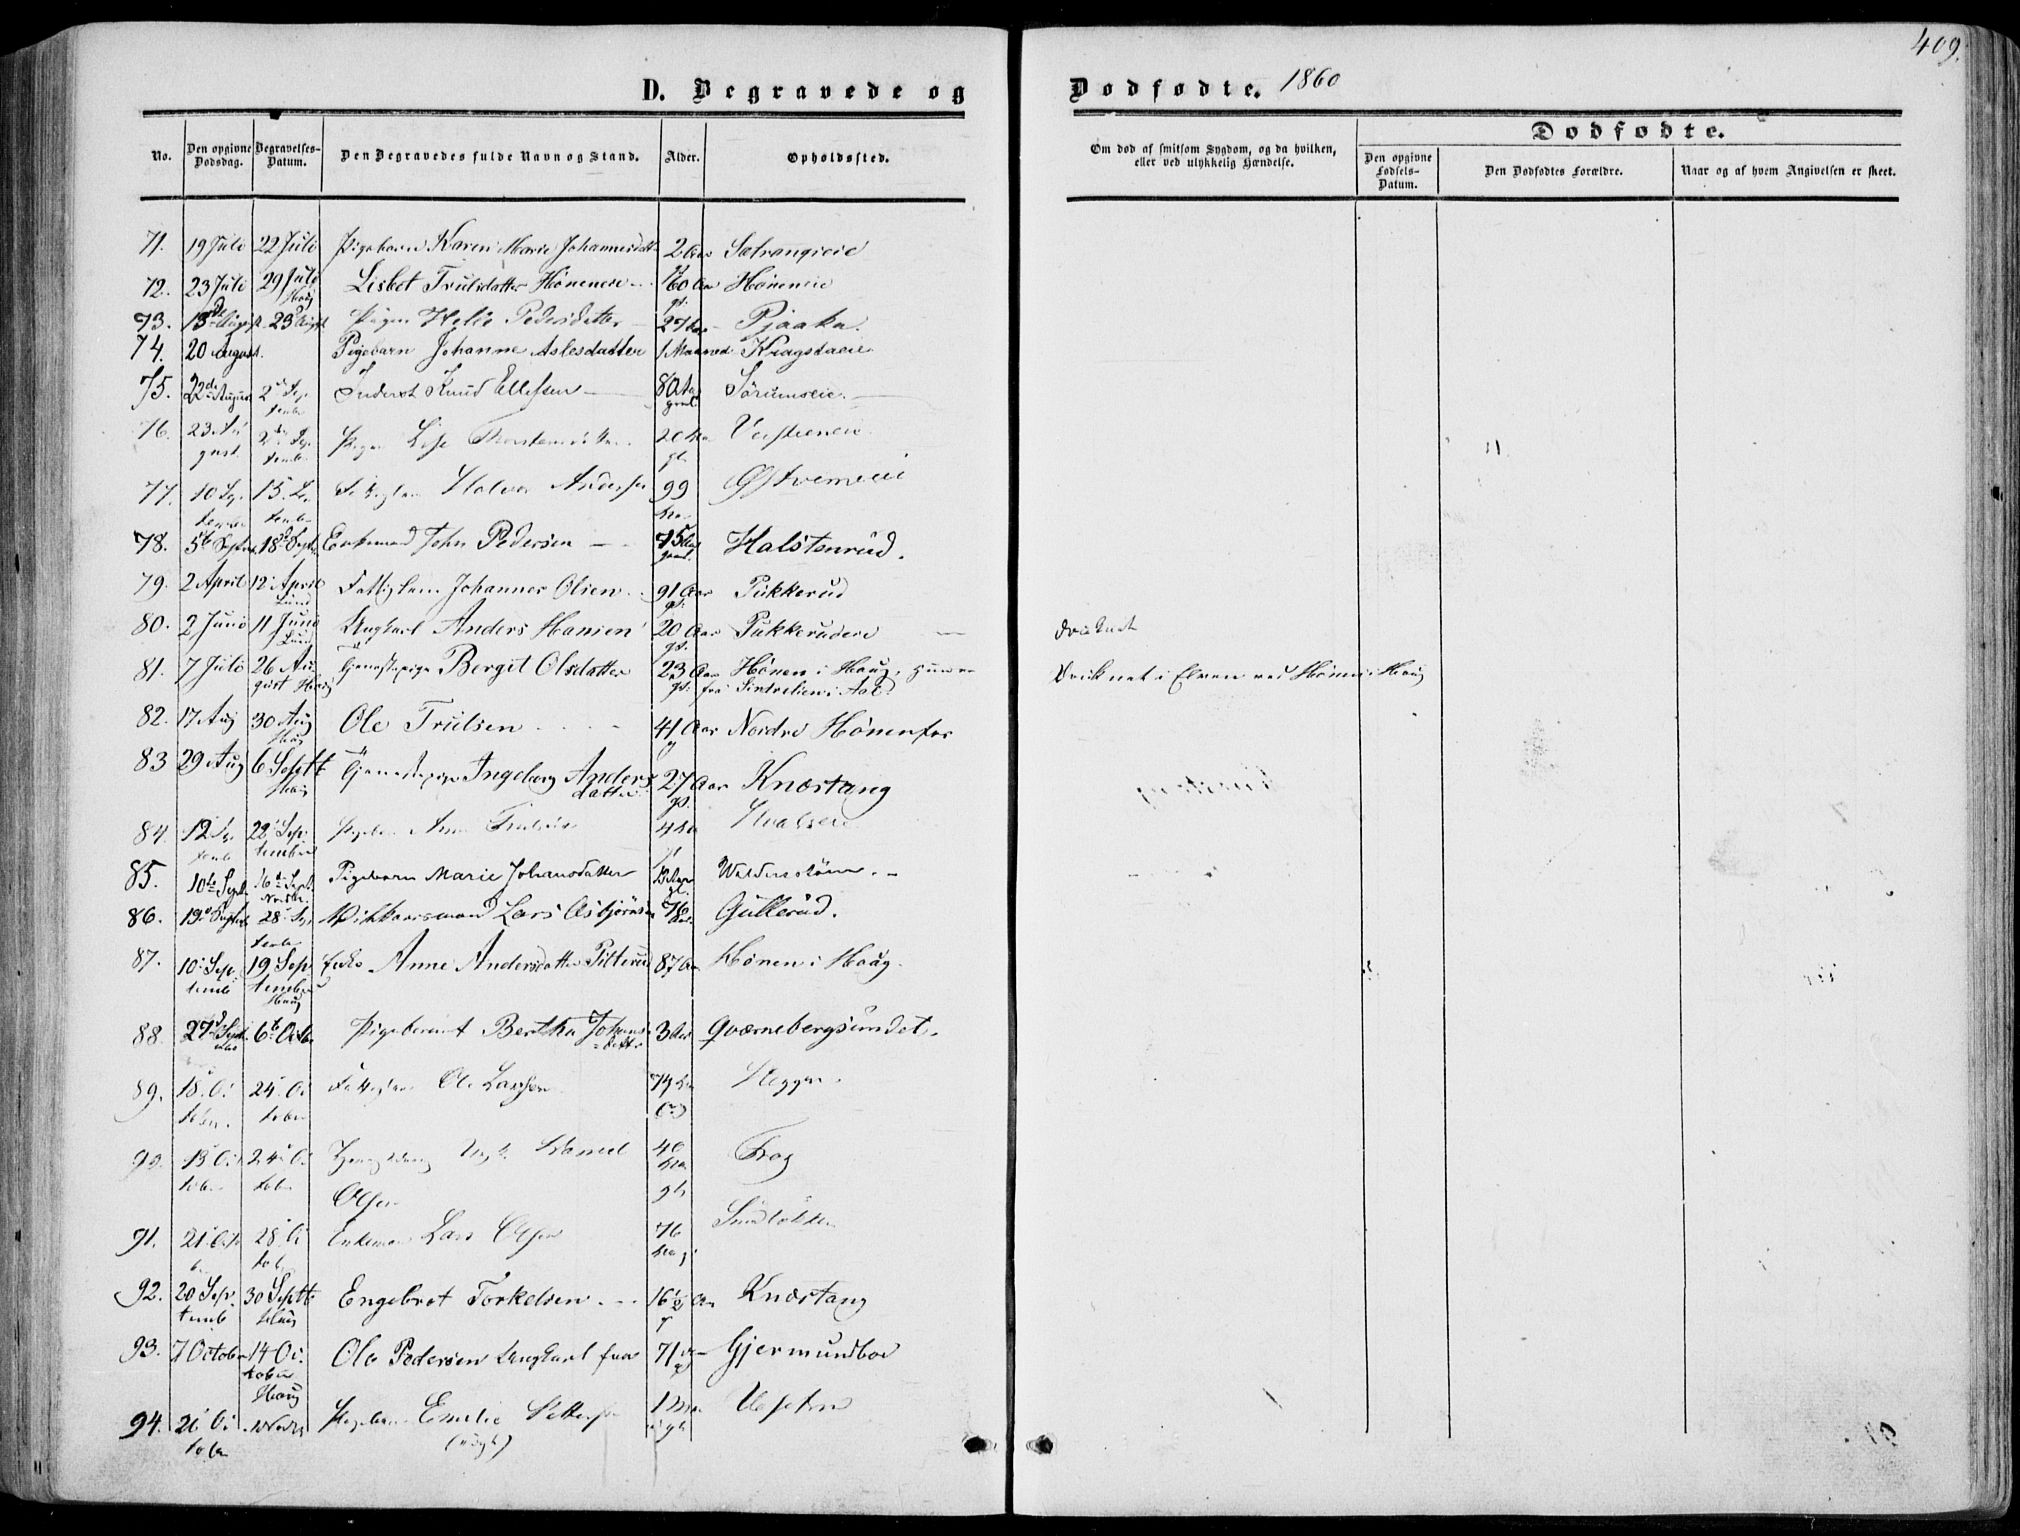 409.
D. Begravede og Dødfødte. 1860
No.
Den opgivne Dødsdag.
Begravelses-Datum.
Den Begravedes fulde Navn og Stand.
Alder.
Opholdssted.
Om død af smitsom Sygdom, og da hvilken, eller ved ulykkelig Hændelse.
Dødfødte.
Den opgivne Fødsels-Datum.
Den Dødfødtes Forældre.
Naar og af hvem Angivelsen er skeet.
71. 19 Juli 22 Juli Pigebarn Karen Marie Johannesdatt 2 Aar
72. 23 Juli 29 Juli Haug Lisbet Trulsdatter Høneneie 60 Aar gl. Høneneie
73. 13de August 23de Augst Pigen Helie Pedersdatter 27 Aar Pjaaka.
74. 20 August. Pigebarn Johanne Aslesdatter 1 Maaned Kragstaeie
75. 22de August 2den September Inderst Knud Ellefsen 80 Aar gml. Sørumseie.
76. 23 August 2den September Pigen Lise 20 Aar gl.
77. 10 September 15 September Fattiglem Halvor Andersen 99 Aar
78. 5te Septbr. 18de Septbr Enkemand John Pedersen 75 Aar gaml. Halstenrud.
79. 2 April 12 April Lund Fattiglem Johannes Olsen 91 Aar gl. Pukkerud
80. 2 Juni 11 Juni Lund Ungkarl Anders Hansen 20 Aar gl. Pukkerudeie Druknet
81. 7 Juli 26 August Haug Tjenestepige Bergit Olsdatter 23 Aar gl. Hønen i Haug, fra i Aal. Druknet i Elven ved Hønen i Haug
82. 17 Aug 30 Aug Haug Ole Trulsen 41 Aar g Nordre Hønenfos
83 29 Aug 6 Septbr Haug Tjenestepige Ingeborg Andersdatter 27 Aar gl. Knæstang
84. 12 September 22 September Pigebarn Anne 4 Aar gl Hvalseie
85. 10de Septbr. 16de Septbr. Norder. Pigebarn Marie Johansdatter gl.
86. 19de Septbr 28 September Vilkaarsmand Lars Asbjørnsen 76 Aar Gullerud.
87. 10 September 19 September Haug Enke Anne Andersdatter Pilterud 87 Aar Hønen i Haug.
88. 27de Septbr. 6te Octbr Pigebarnet Bertha Johansdatter 3 Aar Qværnebergsundet.
89. 18 October. 24 October Fattiglem Ole Larsen 74 Aar Heggen.
90. 13 October 24 October Olsen 40 Aar gl. Frog
91. 21 October 28 October Enkemand Lars Olsen 76 Aar g.
92. 20 September 30 Septbr Haug Engebret Torkelsen 16½ Aar g Knæstang
93. 7 October 14 October Haug Ole Pedersen Ungkarl 71 Gjermundboe
94. 26 October Norder Pigebarn Emilie Pettersen (uægte)